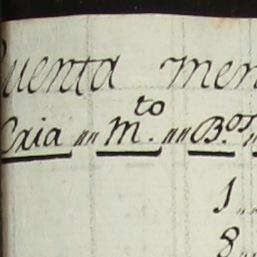 uenta men
Caia „„ M.to „„ B.os „
1 „
8 „